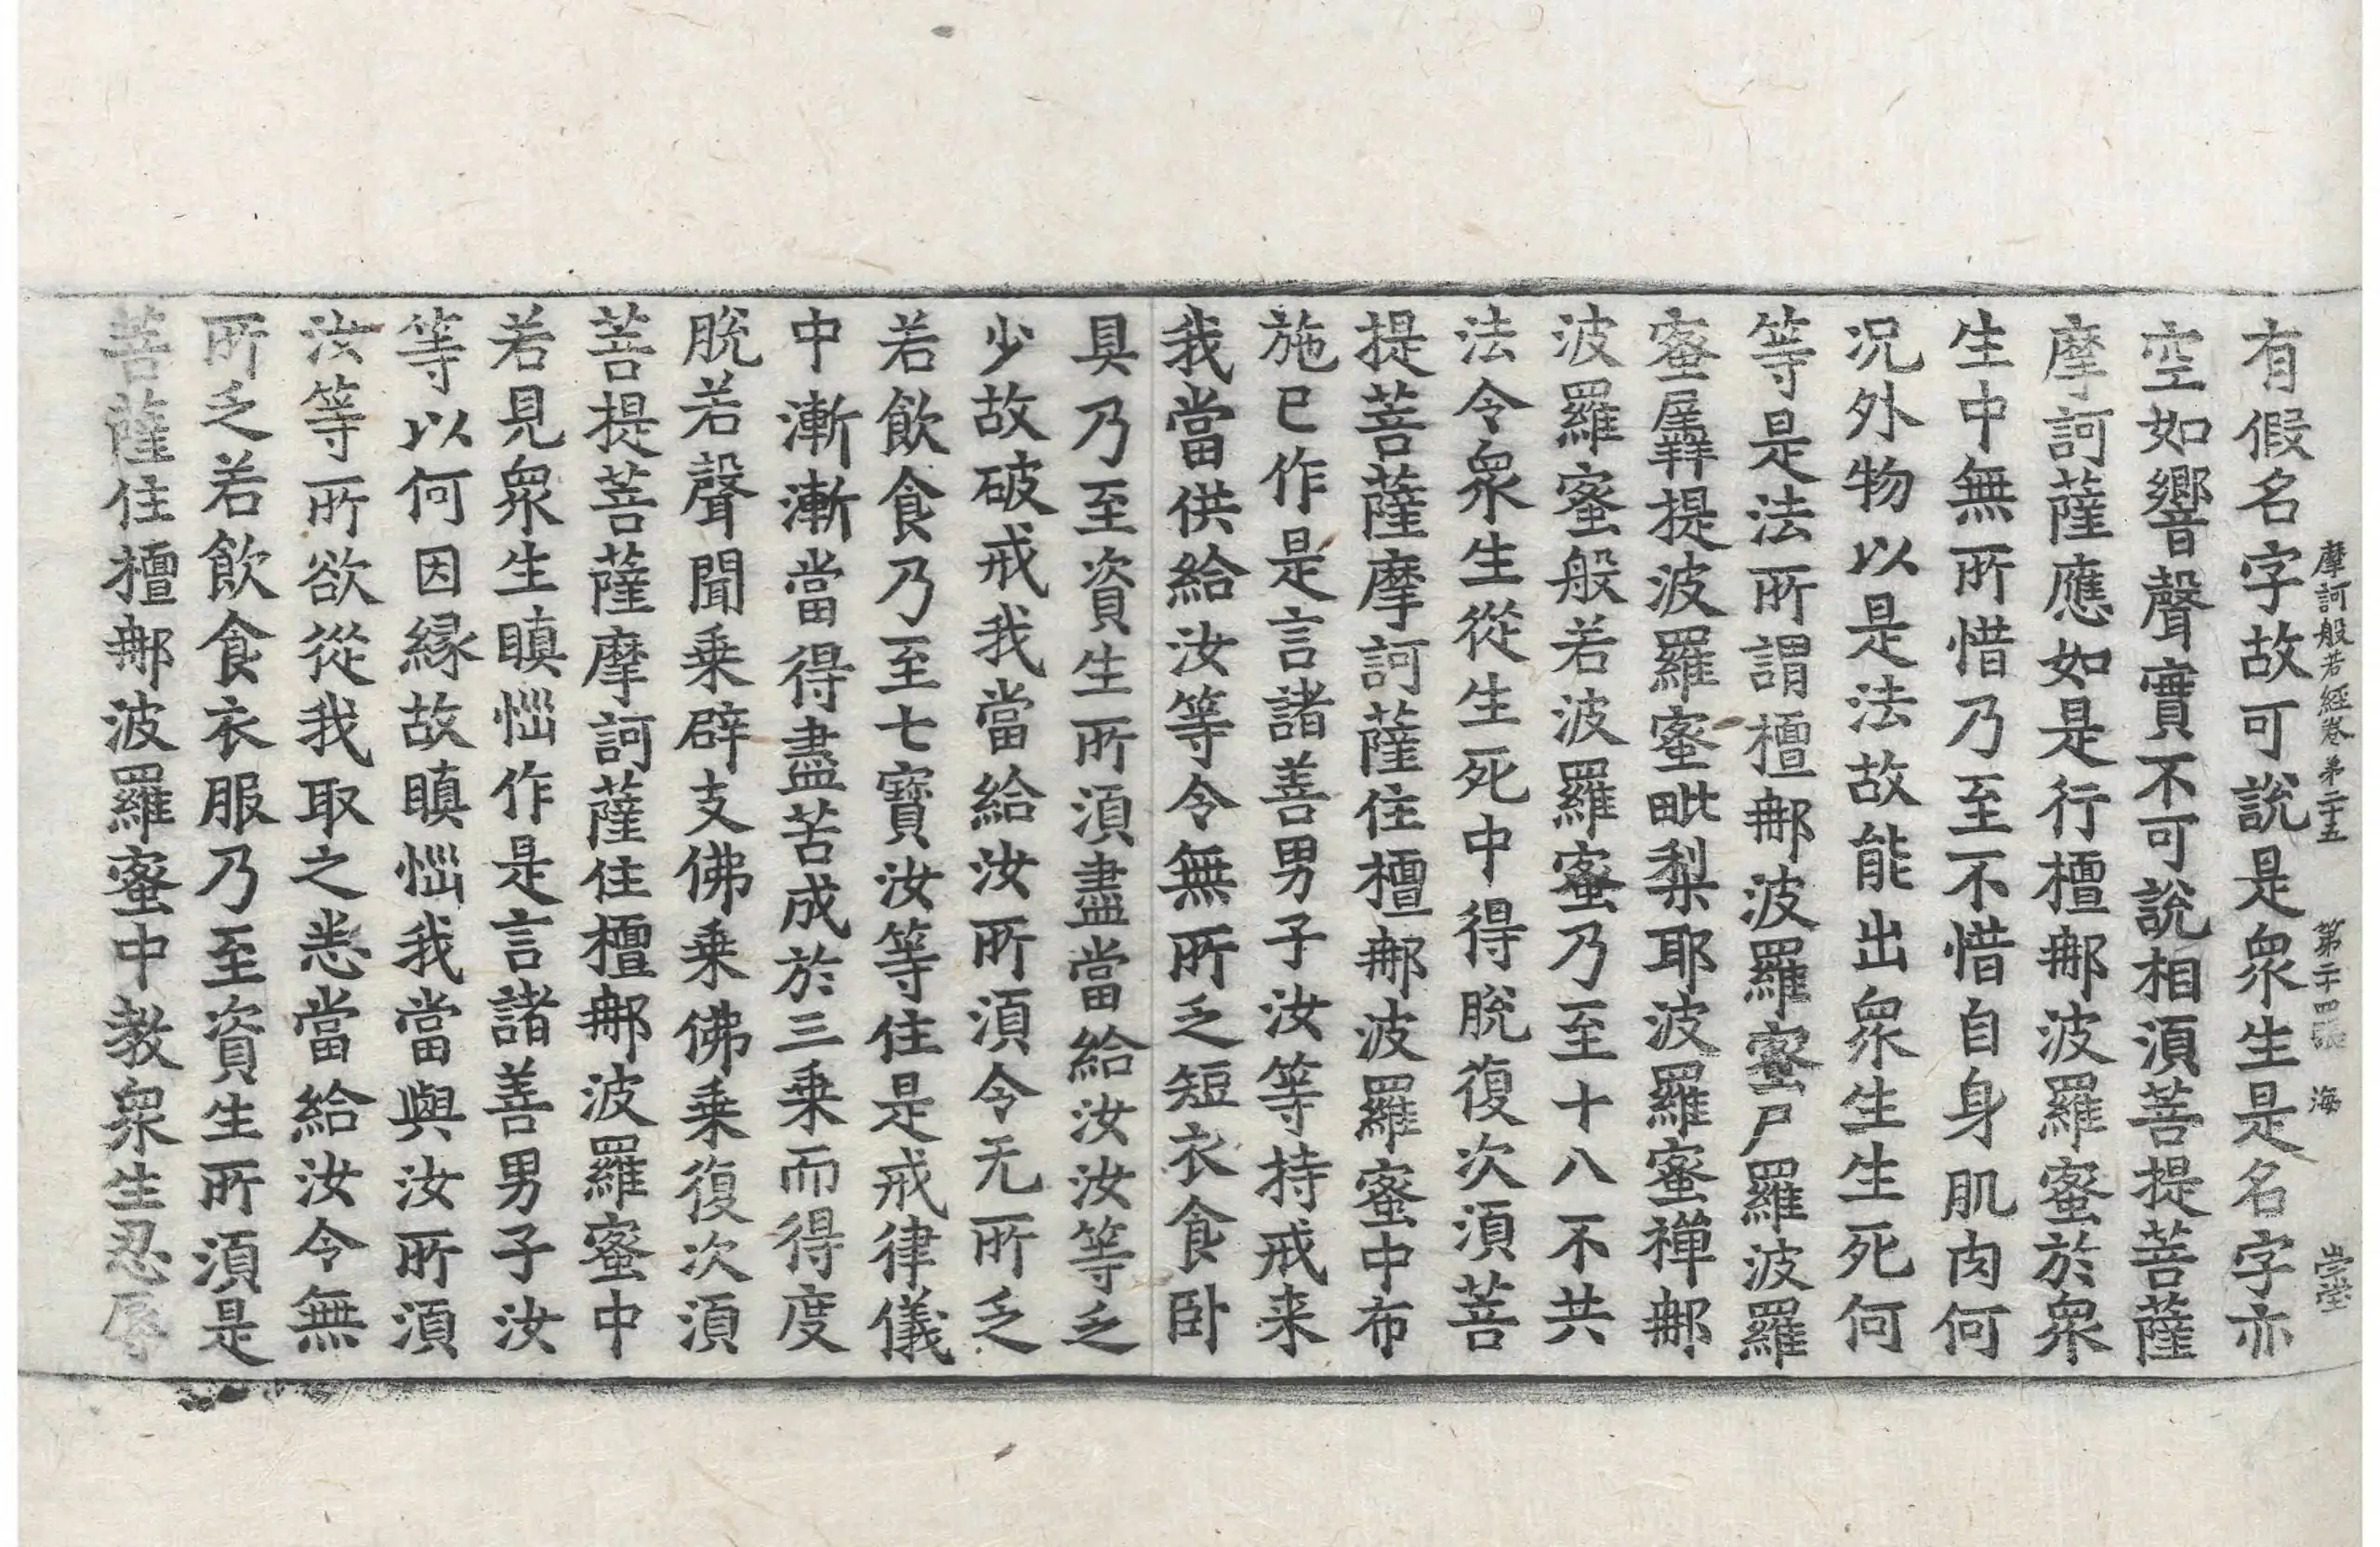 摩訶般若經卷第二十五 第二十四張 海
有假名字故可說是眾生是名字亦
空如響聲實不可說相須菩提菩薩
摩訶薩應如是行檀那波羅蜜於眾
生中無所惜乃至不惜自身肌肉何
況外物以是法故能出眾生生死何
等是法所謂檀那波羅蜜尸羅波羅
蜜羼提波羅蜜毗梨耶波羅蜜禪那
波羅蜜般若波羅蜜乃至十八不共
法令眾生從生死中得脫復次須菩
提菩薩摩訶薩住檀那波羅蜜中布
施已作是言諸善男子汝等持戒来
我當供給汝等令無所乏短衣食卧
具乃至資生所須盡當給汝汝等乏
少故破戒我當給汝所須令无所乏
若飲食乃至七寶汝等住是戒律儀
中漸漸當得盡苦成於三乗而得度
脫若聲聞乗辟支佛乗佛乗復次須
菩提菩薩摩訶薩住檀那波羅蜜中
若見眾生瞋惱作是言諸善男子汝
等以何因縁故瞋惱我當與汝所須
汝等所欲從我取之悉當給汝令無
所乏若飲食衣服乃至資生所須是
菩薩住檀那波羅蜜中教眾生忍辱